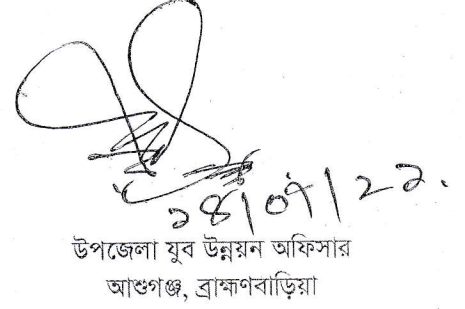 ১৪/০৭/২১.
উপজেলা যুব উন্নয়ন অফিসার
আশুগঞ্জ, ব্রাহ্মণবাড়িয়া